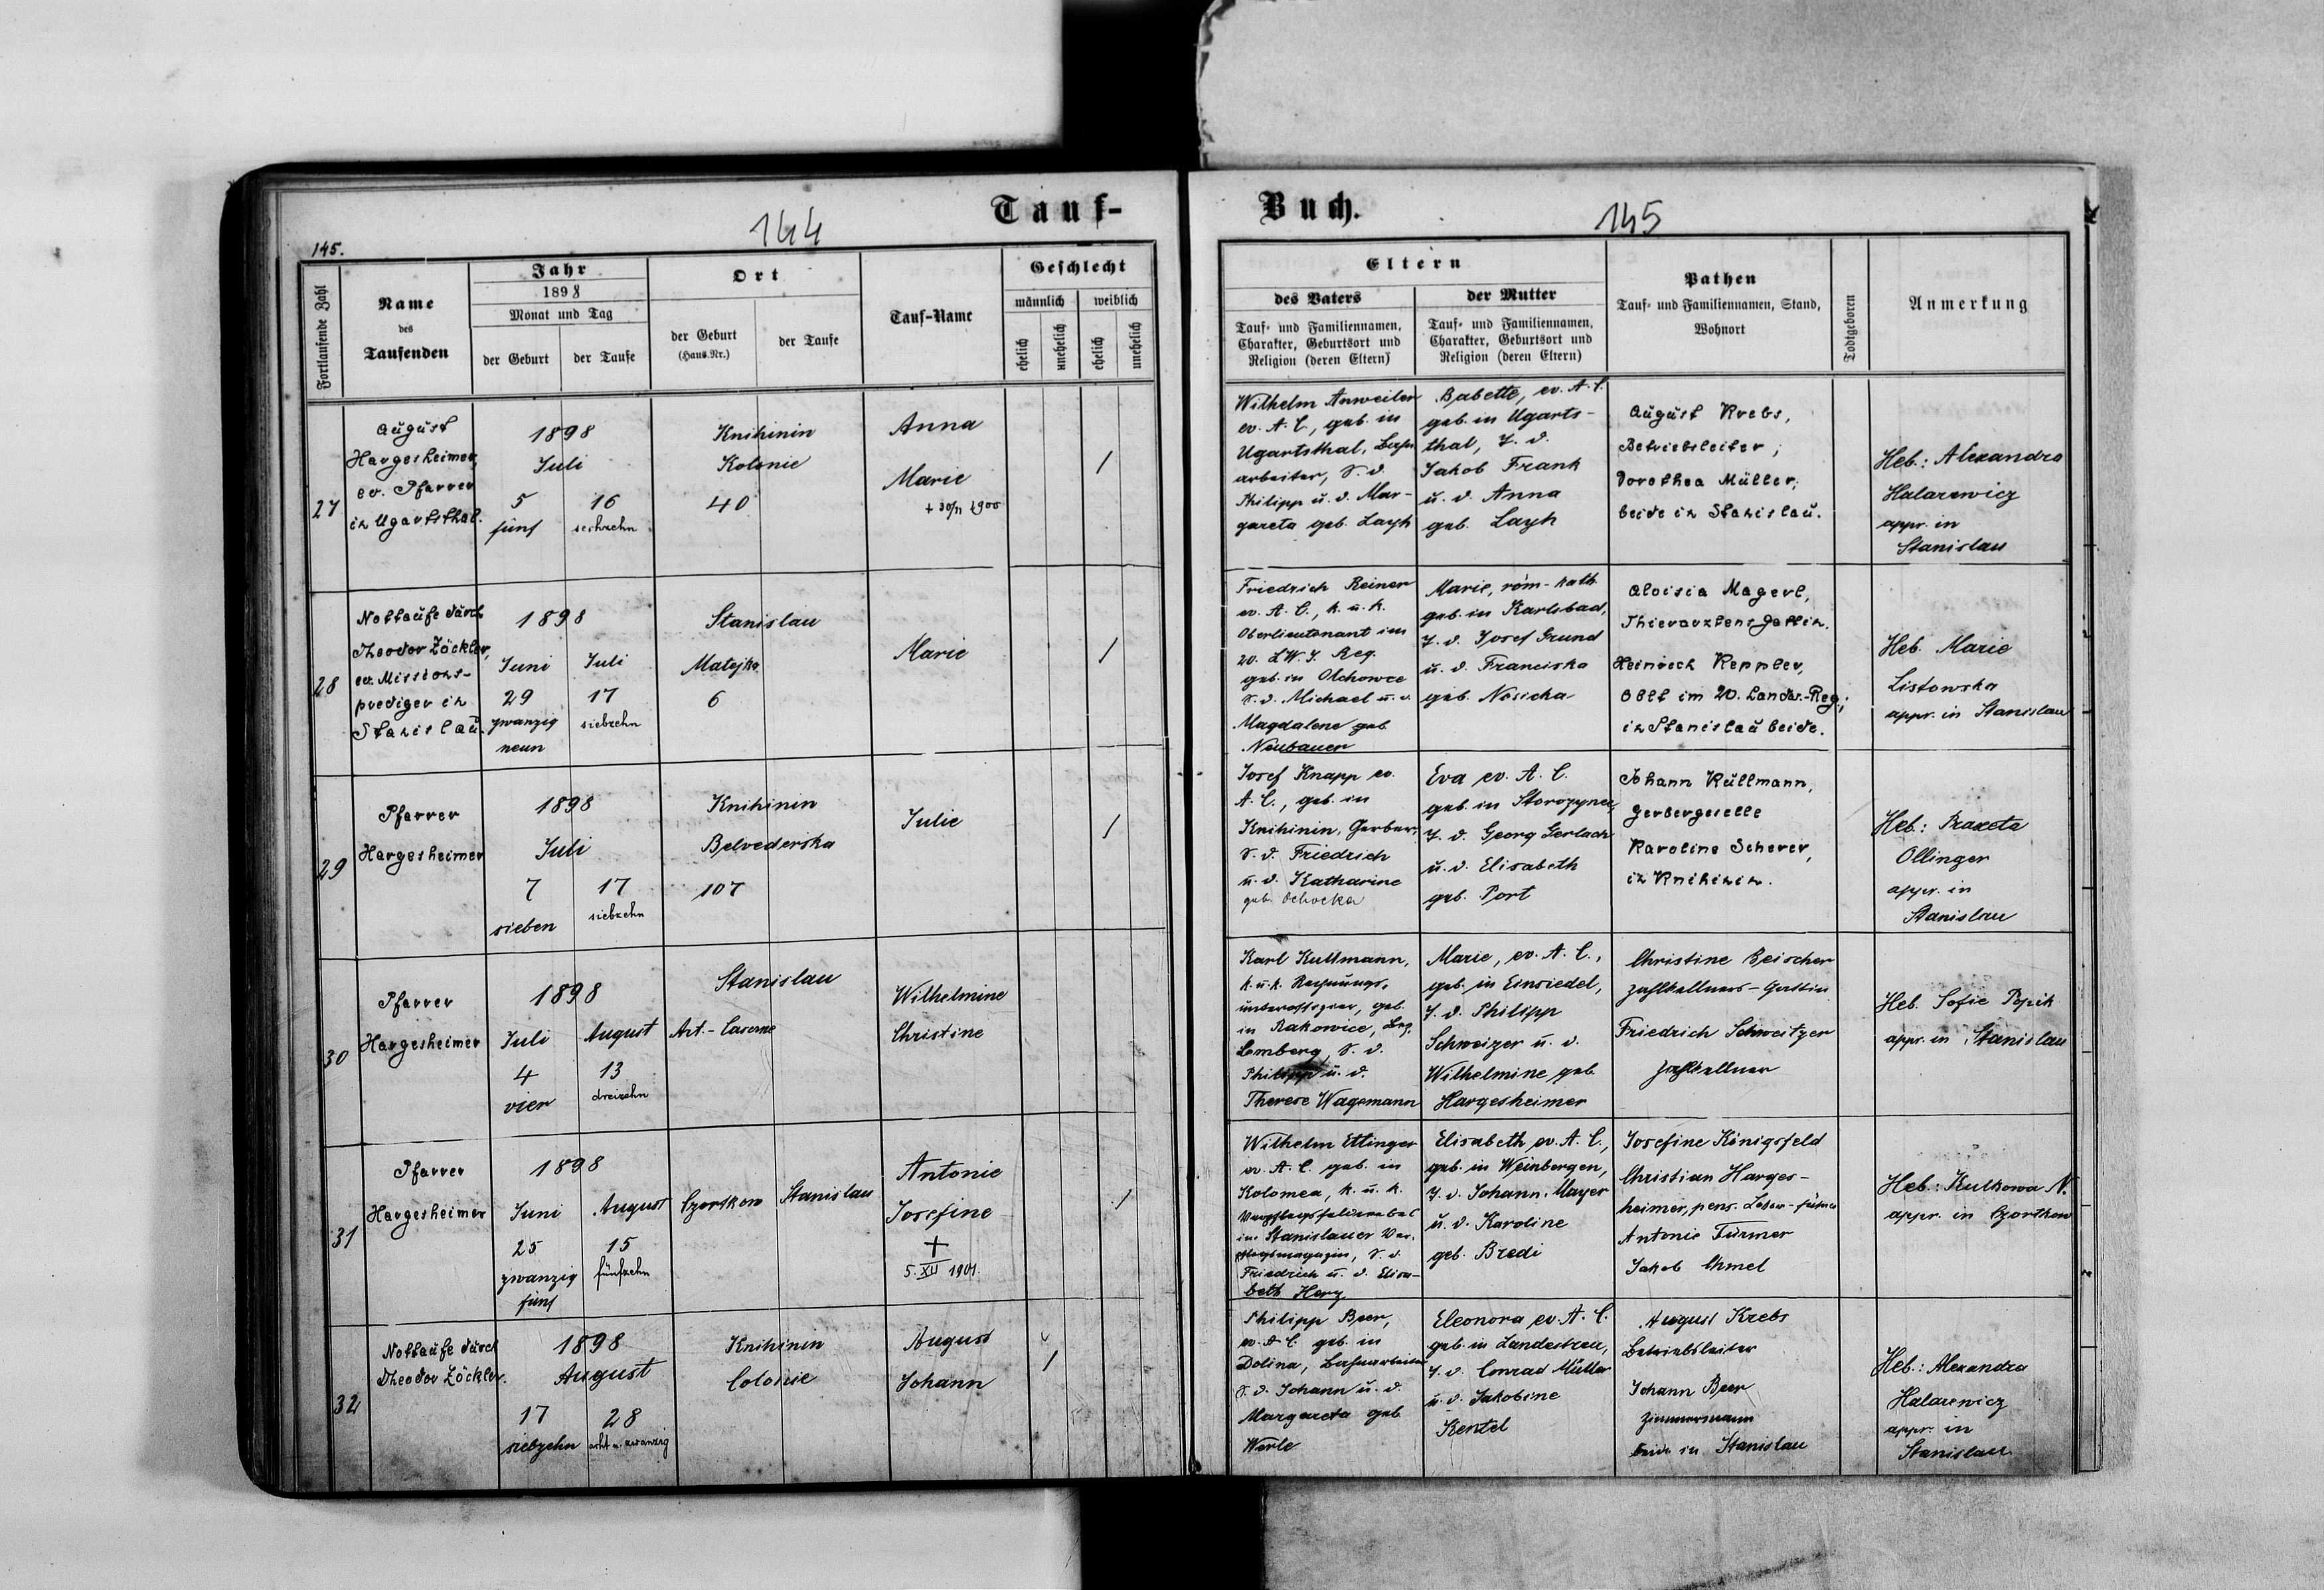 Tauf-
Buch.
144
145
145.
Fortlaufende Zahl
Name
des
Taufenden
Jahr
1898
Monat und Tag
der Geburt
der Taufe
Ort
der Geburt
(Haus-Nr.)
der Taufe
Tauf-Name
Geschlecht
männlich
weiblich
ehelich
unehelich
ehelich
unehelich
Eltern
des Vaters
Tauf- und Familiennamen,
Charakter, Geburtsort und
Religion (deren Eltern)
der Mutter
Tauf- und Familiennamen,
Charakter, Geburtsort und
Religion (deren Eltern)
Pathen
Tauf- und Familiennamen, Stand,
Wohnort
Todtgeboren
Anmerkung
27
August
Hargesheimer,
ev. Pfarrer
in Ugartsthal.
1898
Juli
5
fünf
16
sechzehn
Knihinin
Kolonie
40
Anna
Marie
/
Wilhelm Anweiler
ev. A. C., geb. in
Ugartsthal, Bahn
arbeiter, S. d.
Philipp u. d. Mar-
gareta geb. Layh
Babette, ev. A. C.
geb. in Ugarts-
thal, T. d.
Jakob Frank
u. d. Anna
geb. Layh
August Krebs,
Betriebsleiter;
Dorothea Müller;
beide in Stanislau.
Heb.: Alexandra
Halarewicz
appr. in
Stanislau
28
Nottaufe durch
Theodor Zöckler,
ev. Missions-
prediger in
Stanislau.
1898
Juni
29
zwanzig
neun
Juli
17
siebzehn
Stanislau
Matejka
6
Marie
/
Friedrich Reiner
ev. A. C., k. u. k.
Oberlieutenant im
20. LW. I. Reg.
geb. in Olchowce
S. d. Michael u. d.
Magdalene geb.
Neubauer
Marie, röm-kath.
geb. in Karlsbad,
T. d. Josef Grund
u. d. Franciska
geb. Nosicka
Aloisia Magerl,
Thierarztens Gattin.
Heinrich Keppler,
Oblt im 20. Landw.-Reg.;
in Stanislau beide.
Heb. Marie
Listowska
appr. in Stanislau
29
Pfarrer
Hargesheimer
1898
Juli
7
sieben
17
siebzehn
Knihinin
Belvederska
107
Julie
/
Josef Knapp ev.
A. C., geb. in
Knihinin, Gerber,
S. d. Friedrich
u. d. Katharine
geb. Ochocka
Eva ev. A. C.
geb. in Storozynec,
T. d. Georg Gerlach
u. d. Elisabeth
geb. Port
Johann Kullmann,
Gerbergeselle
Karoline Scherer,
in Knihinin.
Heb.: Praxeta
Ollinger
appr. in
Stanislau
30
Pfarrer
Hargesheimer
1898
Juli
4
vier
August
13
dreizehn
Stanislau
Art.-Caserne
Wilhelmine
Christine
Karl Kullmann,
k. u. k. Rechnungs-
unteroffizier, geb.
in Rakowice, Bez.
Lemberg, S. d.
Philipp u. d.
Therese Wagemann
Marie, ev. A. C.,
geb. in Einsiedel,
T. d. Philipp
Schweizer u. d.
Wilhelmine geb.
Hargesheimer
Christine Beischer
Zahlkellners-Gattin
Friedrich Schweitzer
Zahlkellner
Heb. Sofie Popik
appr. in Stanislau
31
Pfarrer
Hargesheimer
1898
Juni
25
zwanzig
fünf
August
15
fünfzehn
Czortkow
Stanislau
Antonie
Josefine
+
5. XII 1901.
/
Wilhelm Ettinger
ev. A. C. geb. in
Kolomea, k. u. k.
im Stanislauer Ver-
pflegsmagazin, S. d.
Friedrich u. d. Elisa-
beth Herz
Elisabeth ev. A. C.,
geb. in Weinbergen,
T. d. Johann Mayer
u. d. Karoline
geb. Bredi
Josefine Königsfeld
Christian Harges-
heimer, pens.
Antonie Türmer
Jakob Chmel
Heb.: Kulkowa N.
appr. in Czortkow
32
Nottaufe durch
Theodor Zöckler.
1898
August
17
siebzehn
28
acht u. zwanzig
Knihinin
Colonie
August
Johann
/
Philipp Beer,
ev. A. C. geb. in
Dolina, Bahnarbeiter
S. d. Johann u. d.
Margareta geb.
Werle
Eleonora ev. A. C.
geb. in Landestreu,
T. d. Conrad Müller
u. d. Jakobine
Kentel
August Krebs
Betriebsleiter
Johann Beer
Zimmermann
beide in Stanislau
Heb.: Alexandra
Halarewicz
appr. in
Stanislau